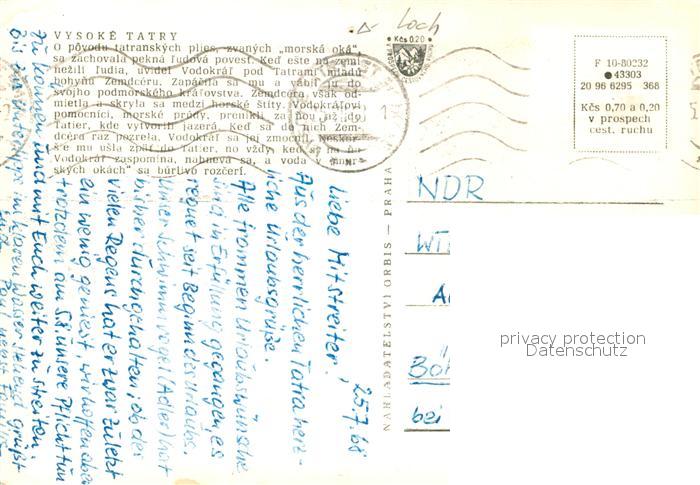 Loch
VYSOKÉ TATRY
O pôvodu tatranských plies, zvaných „morská oká",
sa zachovala pekná ľudová povesť. Keď ešte na zemi
nežili ľudia, uvidel Vodokráľ pod Tatrami mladú
bohyňu Zemdcéru. Zapáčila sa mu a vábil ju do
svojho podmorského kráľovstva. Zemdcéra však od-
mietla a skryla sa medzi horské štíty. Vodokráľovi
pomocníci, morské prúdy, prenikli za ňou až do
Tatier, kde vytvorili jazerá. Keď sa do nich Zem-
dcéra raz pozrela, Vodokráľ sa jej zmocnil. Neskôr
s'e mu ušla zpäť do Tatier, no vždy, keď si na ňu
Vodokráľ zaspomína, nahnevá sa, a voda v „mor-
ských okách" sa búrlivo rozčerí.
Kčs 0,20
F 10-80232
43303
20 96 6295 368
Kčs 0,70 a 0,20
v prospech
cest. ruchu
NAKLADATELSTVÍ ORBIS — PRAHA
25.7.68
Liebe Mitstreiter,
Aus der herrlichen Tatra herz-
liche Urlaubsgrüße.
Alle frommen Urlaubswünsche
sind in Erfüllung gegangen, es
regnet seit Beginn des Urlaubs.
Unser Schwimmvogel (Adler) hat
bisher durchgehalten, ob des
vielen Regens hat er zwar zuletzt
ein wenig geniest, wir hoffen aber
trotzdem am 5.8. unsere Pflicht tun
zu können und mit Euch weiter zu streiten.
Bis zur im klaren Wasser stehend grüßt
Euch
Paul nebst
NDR
bei
privacy protection
Datenschutz